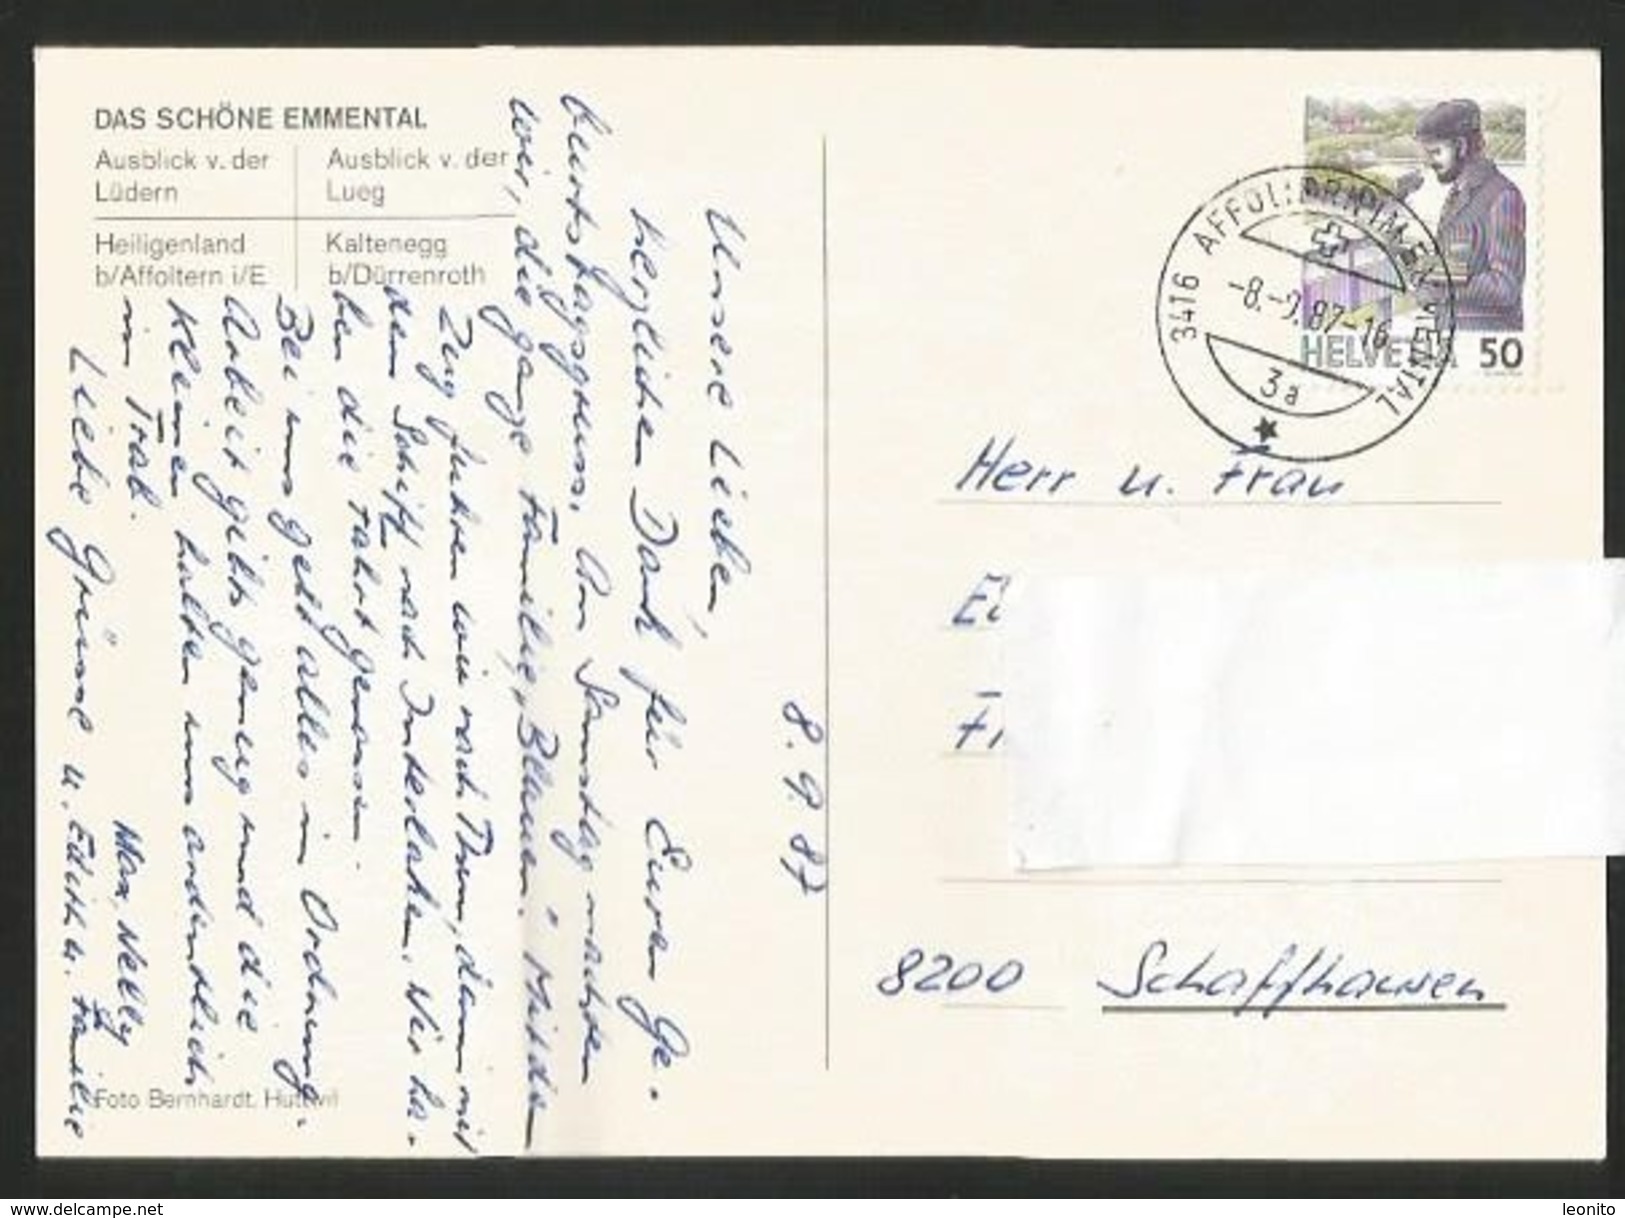 DAS SCHÖNE EMMENTAL
Ausblick v. der
Lüdern
Ausblick v. der
Lueg
Heiligenland
b/Affoltern i/E
Kaltenegg
b/Dürrenroth
8. 9. 87
Unsere Lieben,
herzlichen Dank für Euren Ge-
burtstagsgruss. Am Samstag machten
wir, die ganze Familie, Blauen. Mit dem
Zug fuhren wir nach Thun, dann mit
dem Schiff nach Interlaken. Wir ha-
ben die Fahrt genossen.
Bei uns geht alles in Ordnung.
Arbeit gibts genug und die
Kleinen halten uns ordentlich
im Trab.
Liebe Grüsse
Max, Nelly
u. Edith u. Familie
Foto Bernhardt, Huttwil
3416 AFFOLTERN IM EMMENTAL
-8.-9.87-16
3a
HELVETIA 50
Herr u. Frau
8200 Schaffhausen
www.delcampe.net
leonito